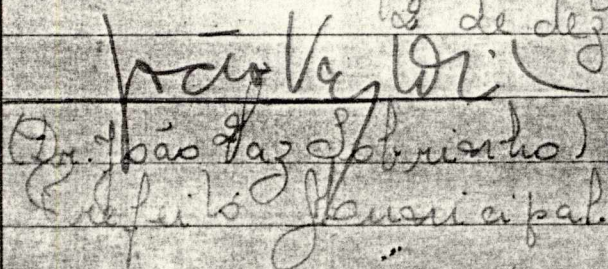 de dez
João Vaz Sobri
(Dr. João Vaz Sobrinho)
Prefeito Municipal.